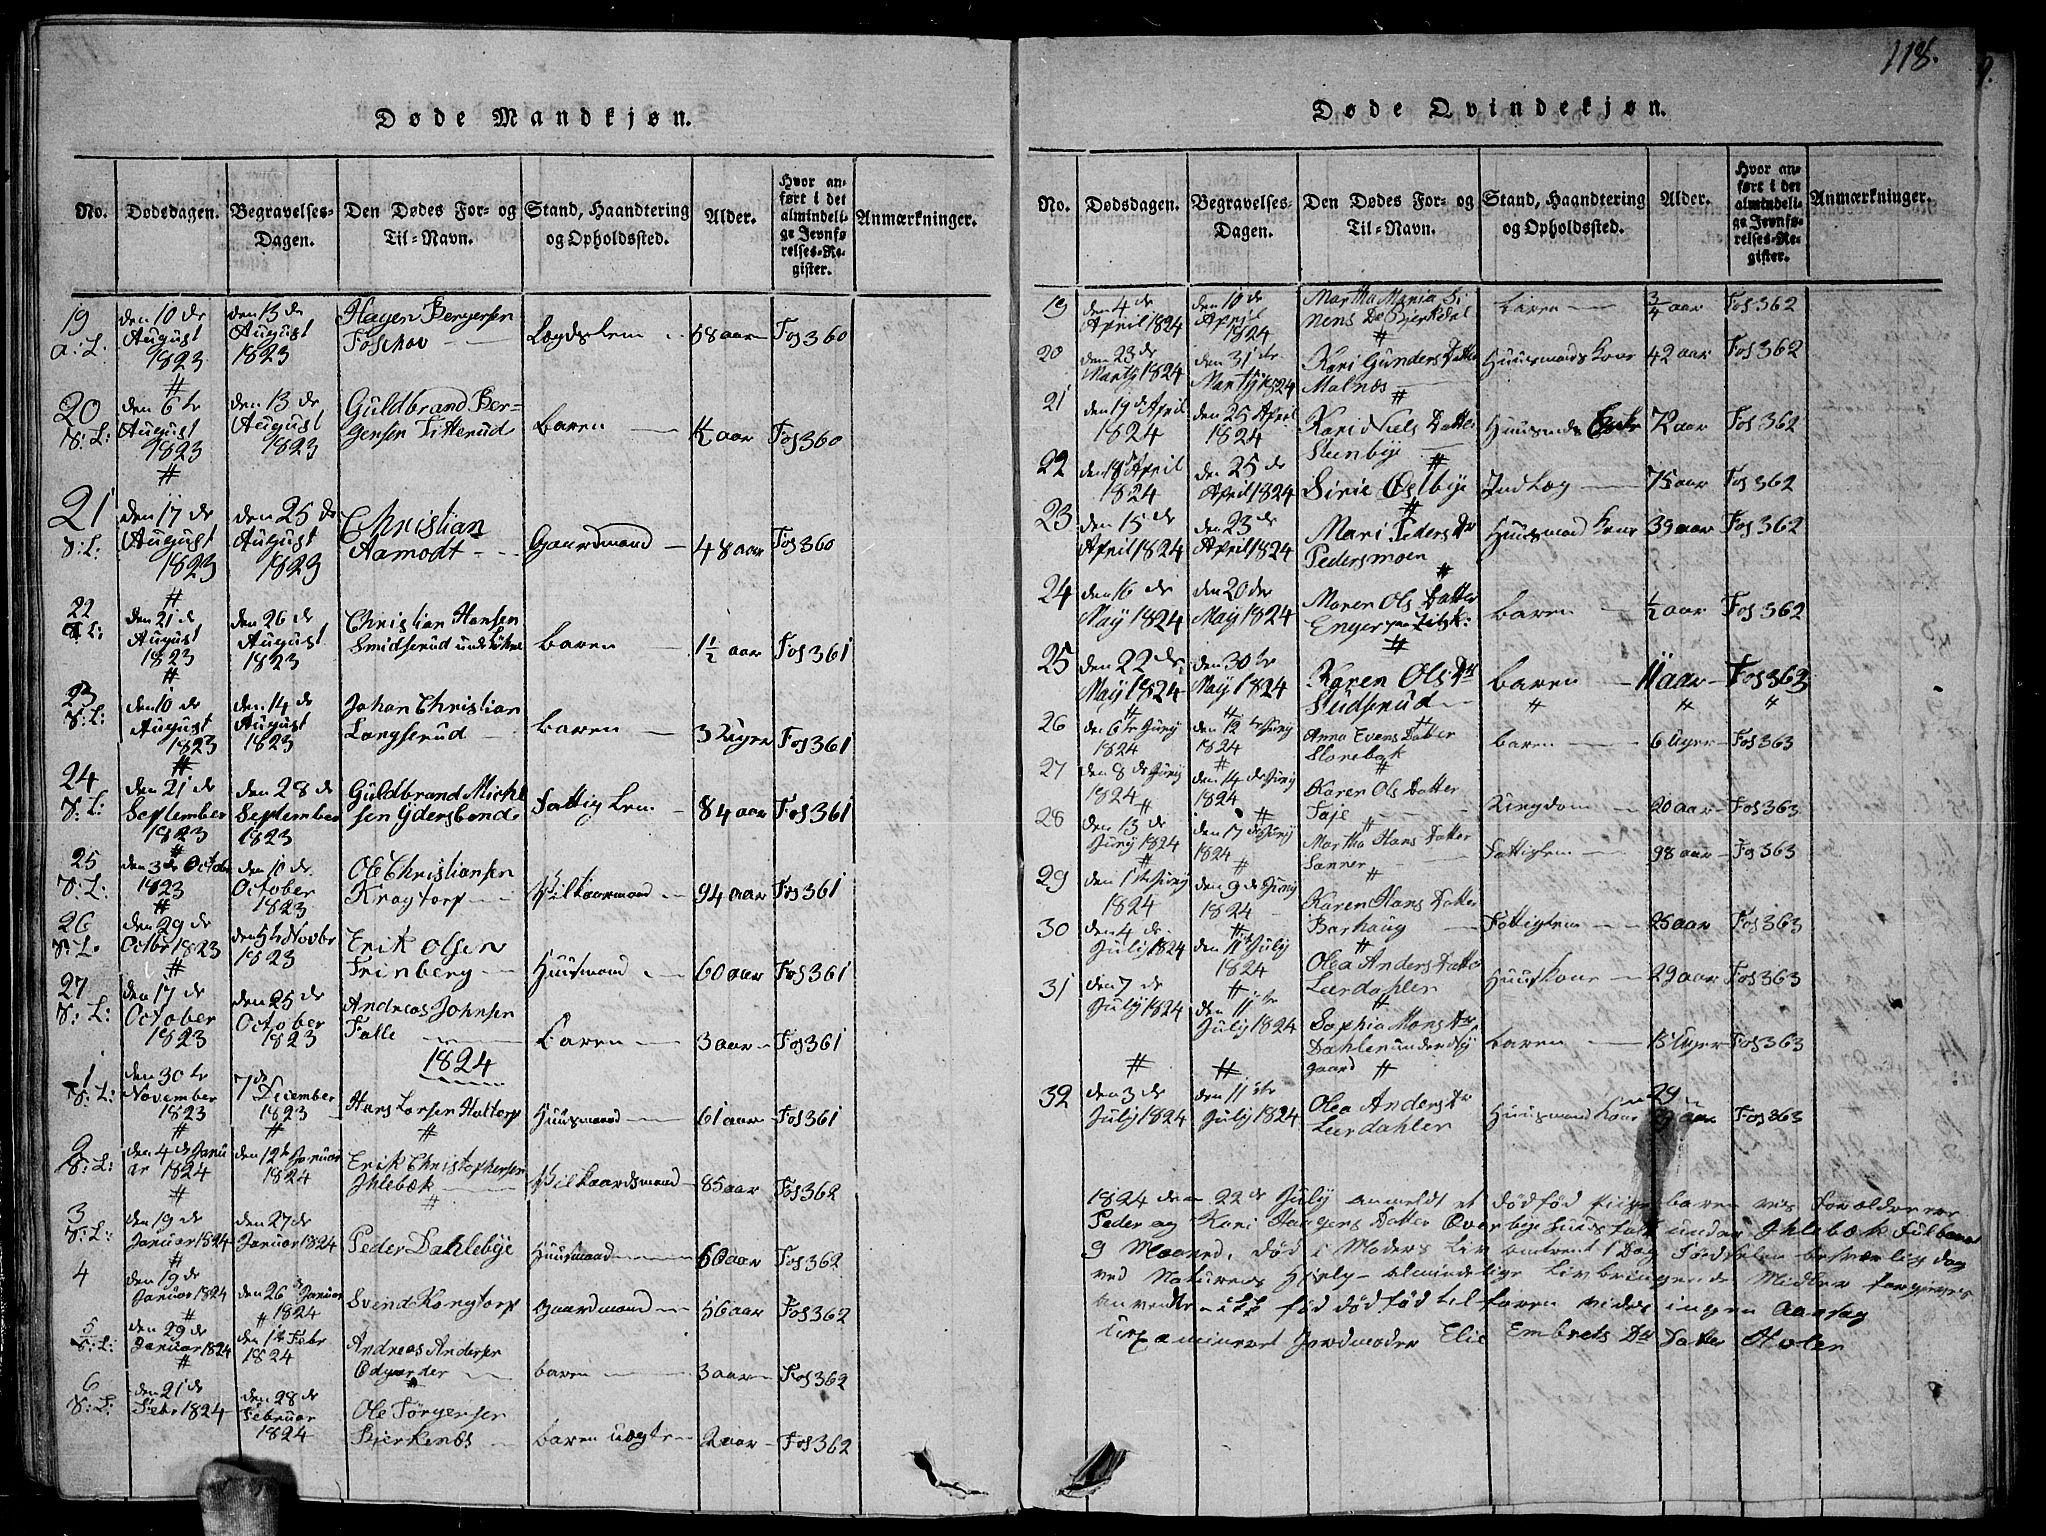 118.
Døde Mandkjøn.
No. Dødsdagen. Begravelses-Dagen. Den Dødes For- og Til-Navn. Stand, Haandtering og Opholdssted. Alder. Hvor anført i det almindelige Jevnførelses-Register. Anmærkninger.
19 den 10 de August 1823 den 13 de August 1823 Hagen Bergersen Foschov Lægdslem 58 aar Fos 360
20 den 6 te August 1823 den 13 de August 1823 Guldbrand Bergersen Titterud baren ½ aar Fos 360
21 den 17 de August 1823 den 25 de August 1823 Christian Aamodt Gaardmand 48 aar Fos 360
22 den 21 de August 1823 den 26 de August 1823 Christian Hansen Smidsrud baren 1½ aar Fos 361
23 den 10 de August 1823 den 14 de August 1823 Johan Christian Langserud baren 3 Uger Fos 361
24 den 21 de September 1823 den 28 de September 1823 Guldbrand Michelsen Ydersbond Fattig Lem 84 aar Fos 361
25 den 3 de October 1823 den 10 de October 1823 Ole Christiansen Krogtorp Vilkaarmand 94 aar Fos 361
26 den 29 de Octbr 1823 den 5 te Novbr 1823 Erik Olsen Trinberg Huusmand 60 aar Fos 361
27 den 17 de October 1823 den 25 de October 1823 Andreas Johnsen Falle baren 3 aar Fos 361
1824
1 den 30 te November 1823 7 de December 1823 Hans Larsen Holtorp Huusmand 61 aar Fos 361
2 den 4 de Januar 1824 den 12 te Januar 1824 Erik Christophersen Ihlebæk Vilkaardsmand 85 aar Fos 362
3 den 19 de Januar 1824 den 27 de Januar 1824 Peder Dahlebye Huusmand 60 aar Fos 362
4 den 19 de Januar 1824 den 26 de Januar 1824 Svend Kongtorp Gaardmand 56 aar Fos 362
5 den 29 de Januar 1824 den 1 te Febr 1824 Andreas Andersen Odgarder baren 3 aar Fos 362
6 den 21 de Febr 1824 den 28 de Februar 1824 Ole Jørgensen Bierkenæs baren uægte 2 aar Fos 362
Døde Qvindekjøn.
No. Dødsdagen. Begravelses-Dagen. Den Dødes For- og Til-Navn. Stand, Haandtering og Opholdssted. Alder. Hvor anført i det almindelige Jevnførelses-Register. Anmærkninger.
19 den 4 de April 1824 den 10 de April 1824 Martha Maria Simens Dr Bjerkdal baren ¾ aar Fos 362
20 den 23 de Marty 1824 den 31 te Marty 1824 Kari Gunders Datter Malnæs Huusmands Kone 42 aar Fos 362
21 den 19 de April 1824 den 25 April 1824 Kari Niels Datter Stenbye Huusmds Enke 72 aar Fos 362
22 den 18 de April 1824 den 25 de April 1824 Sirie Østbye Indlæg 75 aar Fos 362
23 den 15 de April 1824 den 23 de April 1824 Mari Peders Dr Pedersmoen Huusmand Kone 39 aar Fos 362
24 den 16 de May 1824 den 20 de May 1824 Maren Ols Datter Enger baren ½ aar Fos 362
25 den 22 de May 1824 den 30 te May 1824 Karen Ols Dtr Sudserud baren 11 aar Fos 363
26 den 6 te Juny 1824 den 12 te Juny 1824 Anna Evens Datter Storebæk baren 6 Uger Fos 363
27 den 8 de Juny 1824 den 14 de Juny 1824 Karen Ols Datter Faje Ungdom 20 aar Fos 363
28 den 13 de Juny 1824 den 17 de Juny 1824 Martha Hans Datter Sanner Fattiglem 98 aar Fos 363
29 den 1 te Juny 1824 den 9 de Juny 1824 Karen Hans Datter Barhaug Fattiglem 25 aar Fos 363
30 den 4 de July 1824 den 11 te July 1824 Olea Anders Datter Leerdahlen Huuskone 29 aar Fos 363
31 den 7 de July 1824 den 11 te July 1824 Sophia Mons Dr Dahlen under Nygaard baren 15 Uger Fos 363
32 den 3 de July 1824 den 11 te July 1824 Olea Anders Dr Leerdahlen Huusmand Kone 29 aar Fos 363
1824 den 22 de July anmeldt et dødfød Pigebarn ves Forældrene
Peder og Kari Haagens Datter Overbye Huusfolk under Ihlebæk Fulbaaret
9 Maaned. Død i Moders Liv omtrent 1 Dag Fødselen besværlig dog
ved Naturens Hjelp - almindelige Livbringende Midler forgieves
anvendte - dødfød til faren vides ingen Aarsag
Uexamineret Jordmoder Elie Embrets Dtr Datter Holer